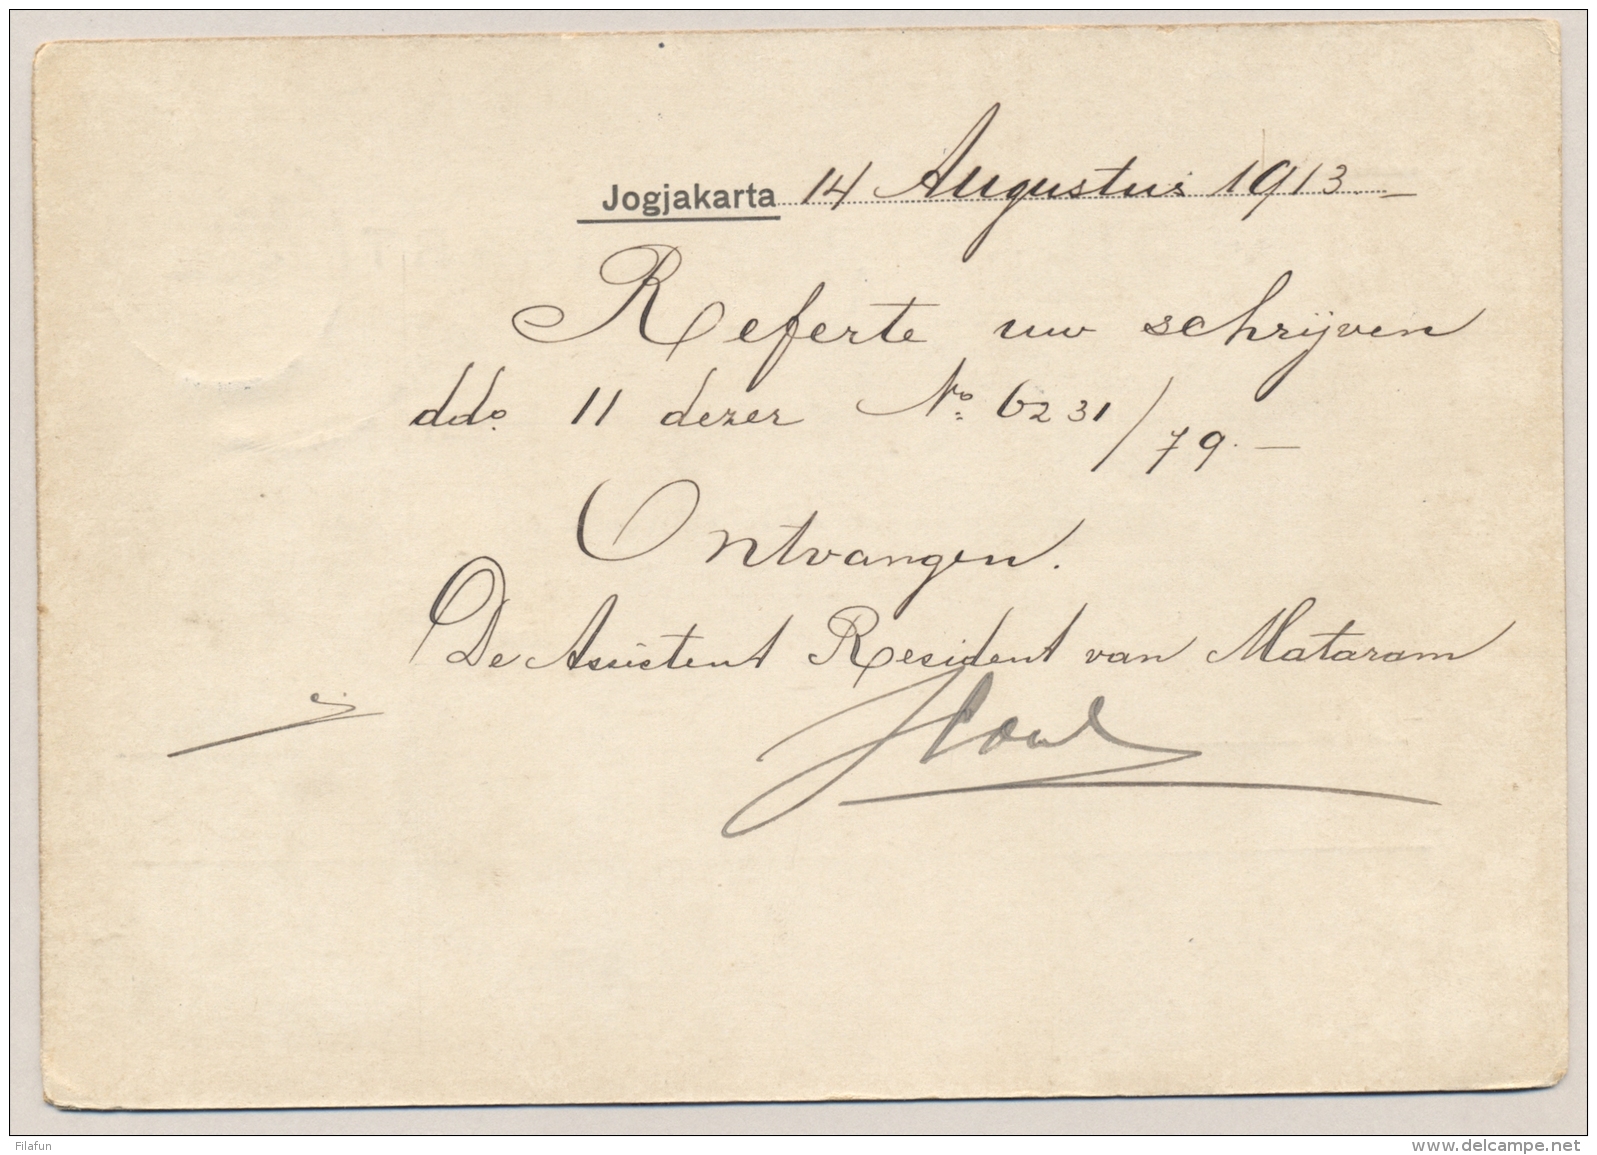 Jogjakarta 14 Augustus 1913.-
Referte uw schrijven
ddo. 11 dezer No. 6231/79.-
Ontvangen.
De Assistent Resident van Mataram
Filafun
www.delcampe.net